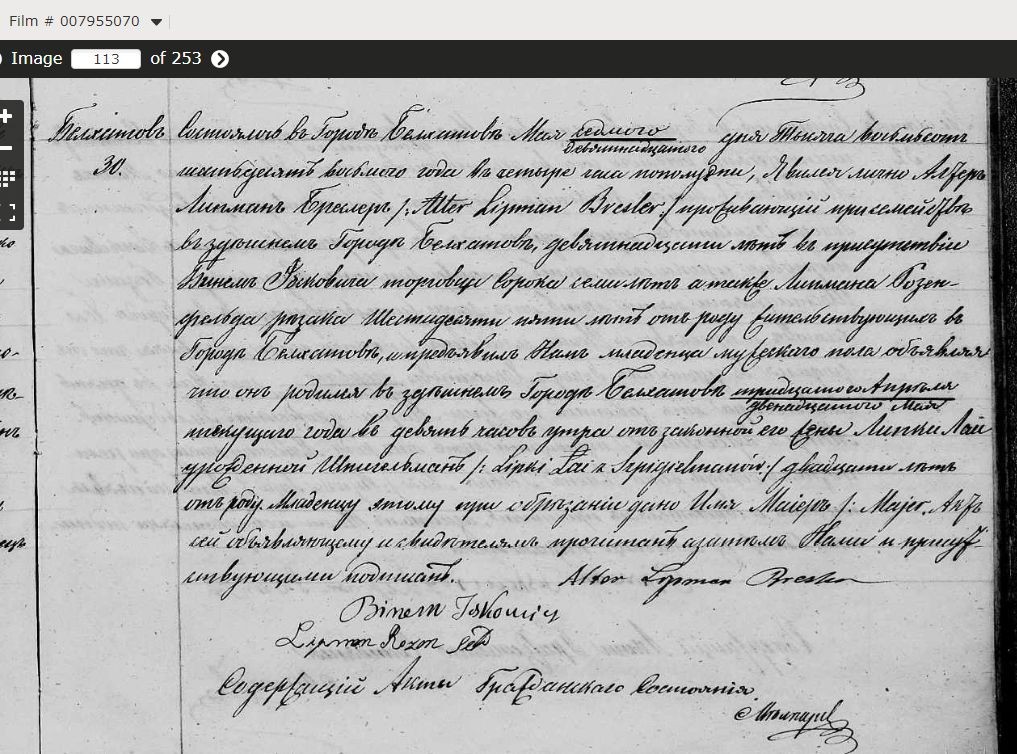 Film # 007955070
Image 113 of 253
Белхатовъ
30.
Состоялось въ Городѣ Белхатовѣ Мая седмого
девятнадцатого дня Тысяча восемьсотъ
шестьдесятъ восьмого года въ четыре часа пополудни, Явился лично Альтеръ
Липманъ Бреслеръ /: Alter Lipman Bresler :/ проживающій при семействѣ
въ здѣшнемъ Городѣ Белхатовѣ, девятнадцати лѣтъ въ присутствіи
Бинемъ Ицковича торговца Сорока семи лѣтъ а также Липмана Розен-
фельда рѣзака Шестидесяти пяти лѣтъ отъ роду жительствующихъ въ
Городѣ Белхатовѣ, и предъявилъ Намъ младенца мужескаго пола объявляя
что онъ родился въ здѣшнемъ Городѣ Белхатовѣ тридцатого Апрѣля
двенадцатого Мая
текущаго года въ девять часовъ утра отъ законной его жены Липки Лаи
урожденной Шпигельманъ /: Lipki Łai z Szpigielmanów :/ двадцати лѣтъ
отъ роду. Младенцу этому при обрѣзаніи дано Имя Маіеръ /: Majer. Актъ
сей объявляющему и свидѣтелямъ прочитанъ а затѣмъ Нами и присут-
ствующими подписанъ. Alter Lipman Bresler
Binem Ickowicz
Lipman Rozen feld
Содержащій Акты Гражданскаго Состоянія